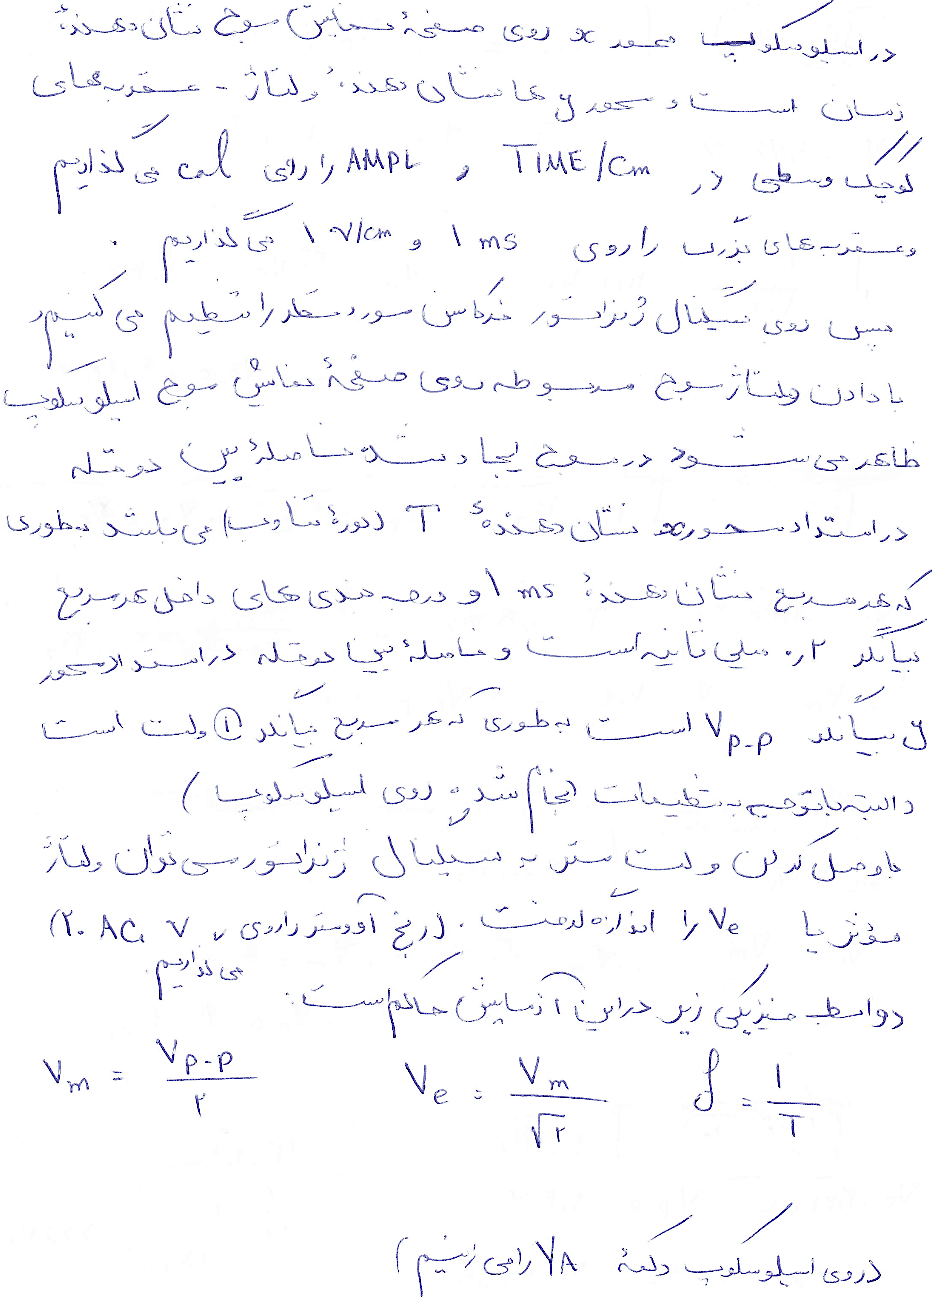 در اسیلوسکوپ محور x روی صفحهٔ نمایش موج نشان دهندهٔ
زمان است و محور y ها نشان دهندهٔ ولتاژ - عقربه های
کوچک وسطی در TIME/Cm و AMPL را رای cal می گذاریم
و عقربه های بزرگ را روی ۱ ms و ۱ V/cm می گذاریم .
پس روی سیگنال ژنراتور فرکانس مورد نظر را تنظیم می کنیم و
با دادن ولتاژ موج مربوطه روی صفحهٔ نمایش موج اسیلوسکوپ
ظاهر می شود در موج ایجاد شده فاصلهٔ بین دو قله
در امتداد محور x نشان دهندهٔ T (دورهٔ تناوب) می باشد بطوری
که هر مربع نشان دهندهٔ ۱ ms و درجه بندی های داخل هر مربع
بیانگر ۰.۲ میلی ثانیه است و فاصلهٔ بین دو قله در امتداد محور
y بیانگر Vp-p است به طوری که هر مربع بیانگر ۱ ولت است
(البته با توجه به تنظیمات انجام شده روی اسیلوسکوپ)
با وصل کردن ولت متر به سیگنال ژنراتور می توان ولتاژ
مؤثر یا Ve را اندازه گرفت . (رنج آوومتر را روی V ، AC ، ۲۰
می گذاریم)
روابط فیزیکی زیر در این آزمایش حاکم است:
Vm = Vp-p / ۲ Ve = Vm / √۲ f = ۱ / T
(روی اسیلوسکوپ دکمهٔ YA را می زنیم)